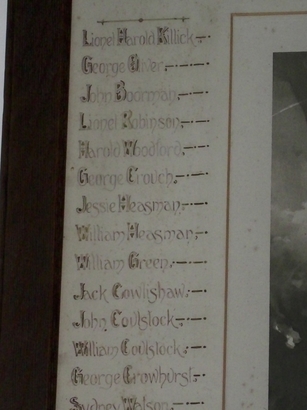 Lionel Harold Killick.
George Oliver.
John Boorman.
Lionel Robinson.
Harold Woodford.
George Crouch.
Jessie Heasman.
William Heasman.
William Green.
Jack Cowlishaw.
John Coulstock.
William Coulstock.
George Crowhurst.
Sydney Watson.